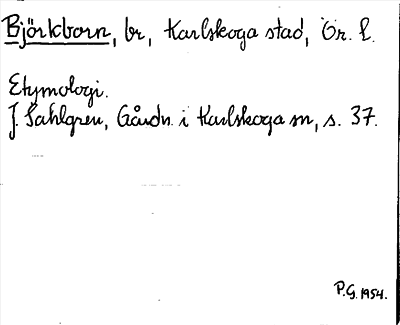 Björkborn, br, Karlskoga stad, Ör. l.
Etymologi.
J. Sahlgren, Gårdn. i Karlskoga sn, s. 37.
P.G. 1954.